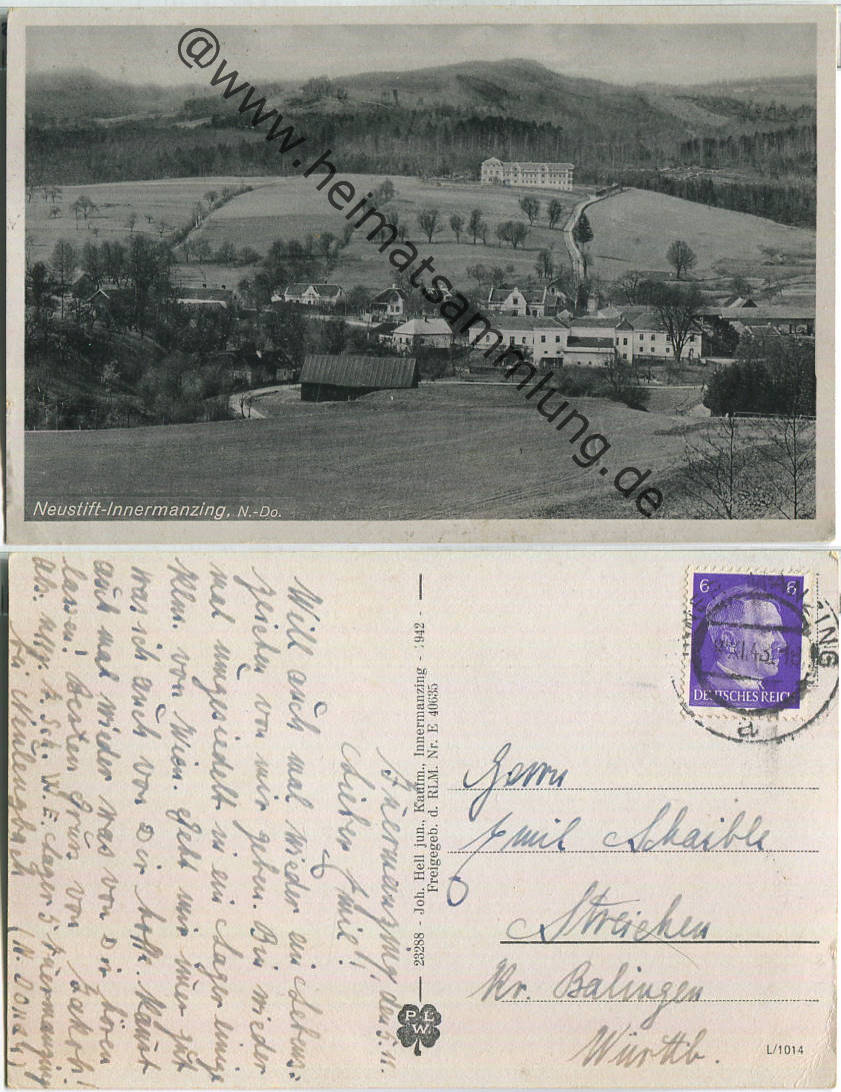 @www.heimatsammlung.de
Neustift-Innermanzing, N.-Do.
Innermanzing, den 5.11.
Lieber Emil!
Will auch mal wieder ein Lebens-
zeichen von mir geben. Bin wieder
mal umgesiedelt in ein Lager einige
Klm. von Wien. Geht mir hier gut
was ich auch von Dir hoffe. Kannst
auch mal wieder was von Dir hören
lassen! Besten Gruss von Jakob!
Abs. Uffz. J. Sch. W.E. Lager 5 Innermanzing
bei Neulengbach (N. Donau)
23288 - Joh. Hell jun., Kaufm., Innermanzing - 1942 -
Freigegeb. d. RLM. Nr. E 40635
PLW
6 6
DEUTSCHES REICH
a
Herrn
Emil Schaible
Streichen
Kr. Balingen
Württb.
L/1014